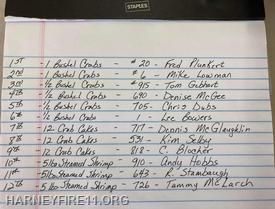 STAPLES
1ST - 1 Bushel Crabs - #20 - Fred Plunkert
2nd - 1 Bushel Crabs - #6 - Mike Lowman
3rd - 1/2 Bushel Crabs - #915 - Tom Gebhart
4th - 1/2 Bushel Crabs - 690 - Denise McGee
5th - 1/2 Bushel Crabs - 705 - Chris Dubs
6th - 1/2 Bushel Crabs - 1 - Lee Bowers
7th - 12 Crab Cakes - 717 - Dennis McGlaughlin
8th - 12 Crab Cakes - 531 - Kim Selby
9th - 12 Crab Cakes - 818 - C. Blocher
10th - 5 lbs Steamed Shrimp - 910 - Andy Hobbs
11th - 5 lbs Steamed Shrimp - 643 - R. Stambaugh
12th - 5 lbs Steamed Shrimp - 726 - Tammy McLarch
HARNEYFIRE11.ORG